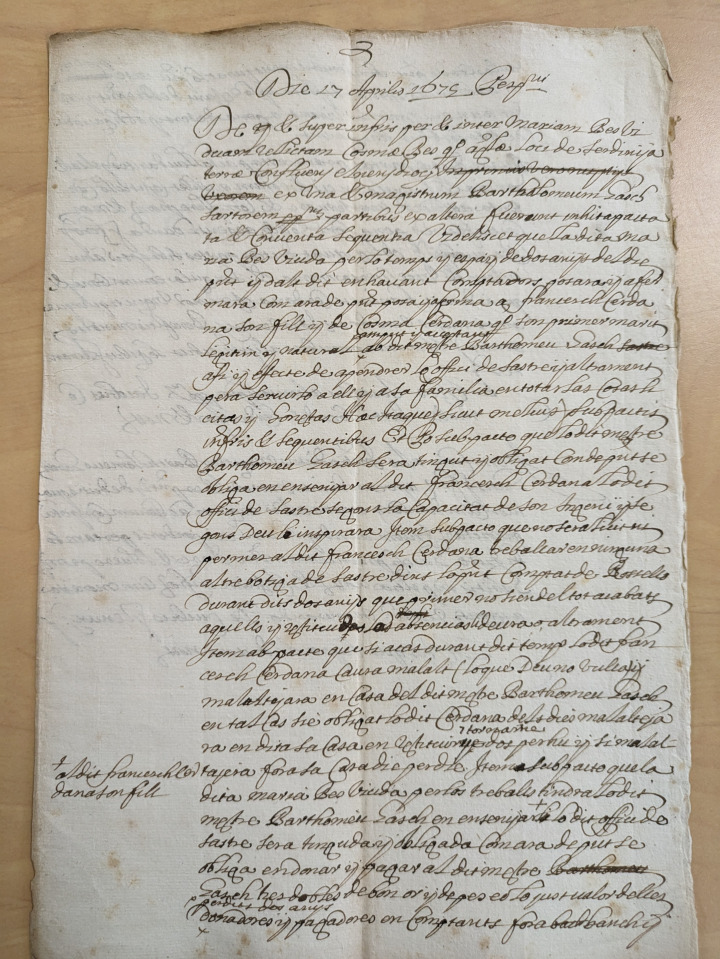 Die 17 Aprilis 1675 Perp.ni
De et & super infris per & inter Mariam Bes Vi
duam Relictam Cosmæ Bes q.º loci de Serdinya
terræ Confluentis
ex Una & magistrum Barthalomeum Gasch
Sartorem partibus ex altera fuerunt inhita pacta
ta & Conventa Sequentia Videliset que la dita Ma
ria Bes Viuda per lo temps y espay de dos anys del die
pnt y dalt dit en havant Comptadors posara y afer
mara Com ara de pnt posa y aferma a francesch Cerda
na son fill y de Cosma Cerdana q.º son primer marit
legitim y natural ab dit mestre Barthomeu Gasch sastre
present y aceptant
afi y efecte de apendrer lo offici de Sastre y altrament
pera servirlo a ell y a sa familia en totas las Cosas li
citas y honestas Hæc itaque sicut melius sub pactis
infris & sequentibus Et Po sub pacto que lo dit mestre
Barthomeu Gasch sera tingut y obligat Com de pnt se
obliga en ensenyar al dit francesch Cerdana lo dit
offici de Sastre segons la Capacitat de son Ingeni y se
gons Deu li inspirara Item sub pacto que no sera licit ni
permes al dit francesch Cerdana treballar en ninguna
altre botiga de sastre dins lo pnt Comptat de Rossello
durant dits dos anys que primer no sien del tot acabats
aquells y restituidas las absencias li deura o altrament
Item ab pacte que si acas durant dit temp lo dit fran
cesch Cerdana Caura malalt (lo que Deu no vulla) y
malaltejara en Casa del dit mestre Barthomeu Gasch
en tal Cas sie obligat lo dit Cerdana dels dies malalteja
ra en dita sa Casa en restituirne dos per hu y si malal-
tajera fora sa Casa die per die. Item sub pacto que la
+ al dit francesch Cer
dana son fill
dita maria Bes Viuda per los treballs tindra lo dit
mestre Barthomeu Gasch en ensenyar + lo dit offici de
sastre sera tinguda y obligada Com ara de pnt se
obliga en donar y pagar al dit mestre Barthomeu
Gasch tres dobles de bon or y de pes o lo just valor de elles
per dits dos anys
donadores y pagadores en Comptants fora